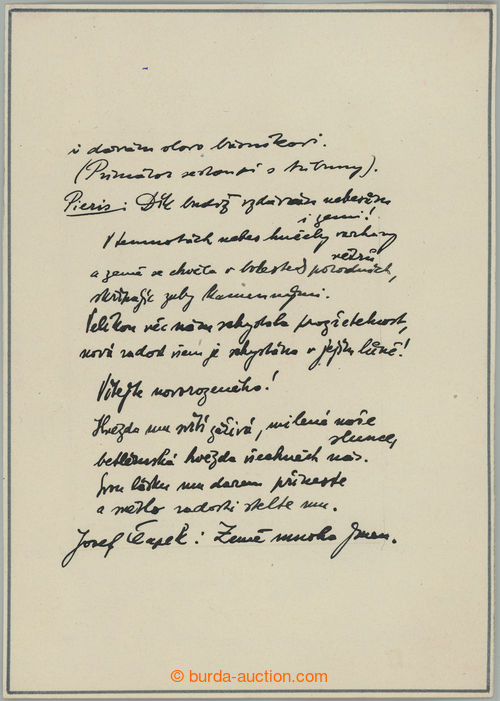 a dávám slovo básníkovi.
(Primátor sestoupí s tribuny).
Pieris: Dík budiž vzdáván nebesům
i zemi!
V temnotách nebes hučely varhany
větrů
a země se chvěla v bolestech porodních,
skřípajíc zuby kamennými.
Velikou věc nám schystala prozřetelnost,
nová radost všem je schystána v jejím lůně!
Vítejte novorozeného!
Hvězda mu svítí zářivá, milená naše
slunce,
betlémská hvězda všechněch nás.
svou lásku mu darem přineste
a světlo radosti stelte mu.
Josef Čapek: Země mnoha jmen.
© burda-auction.com